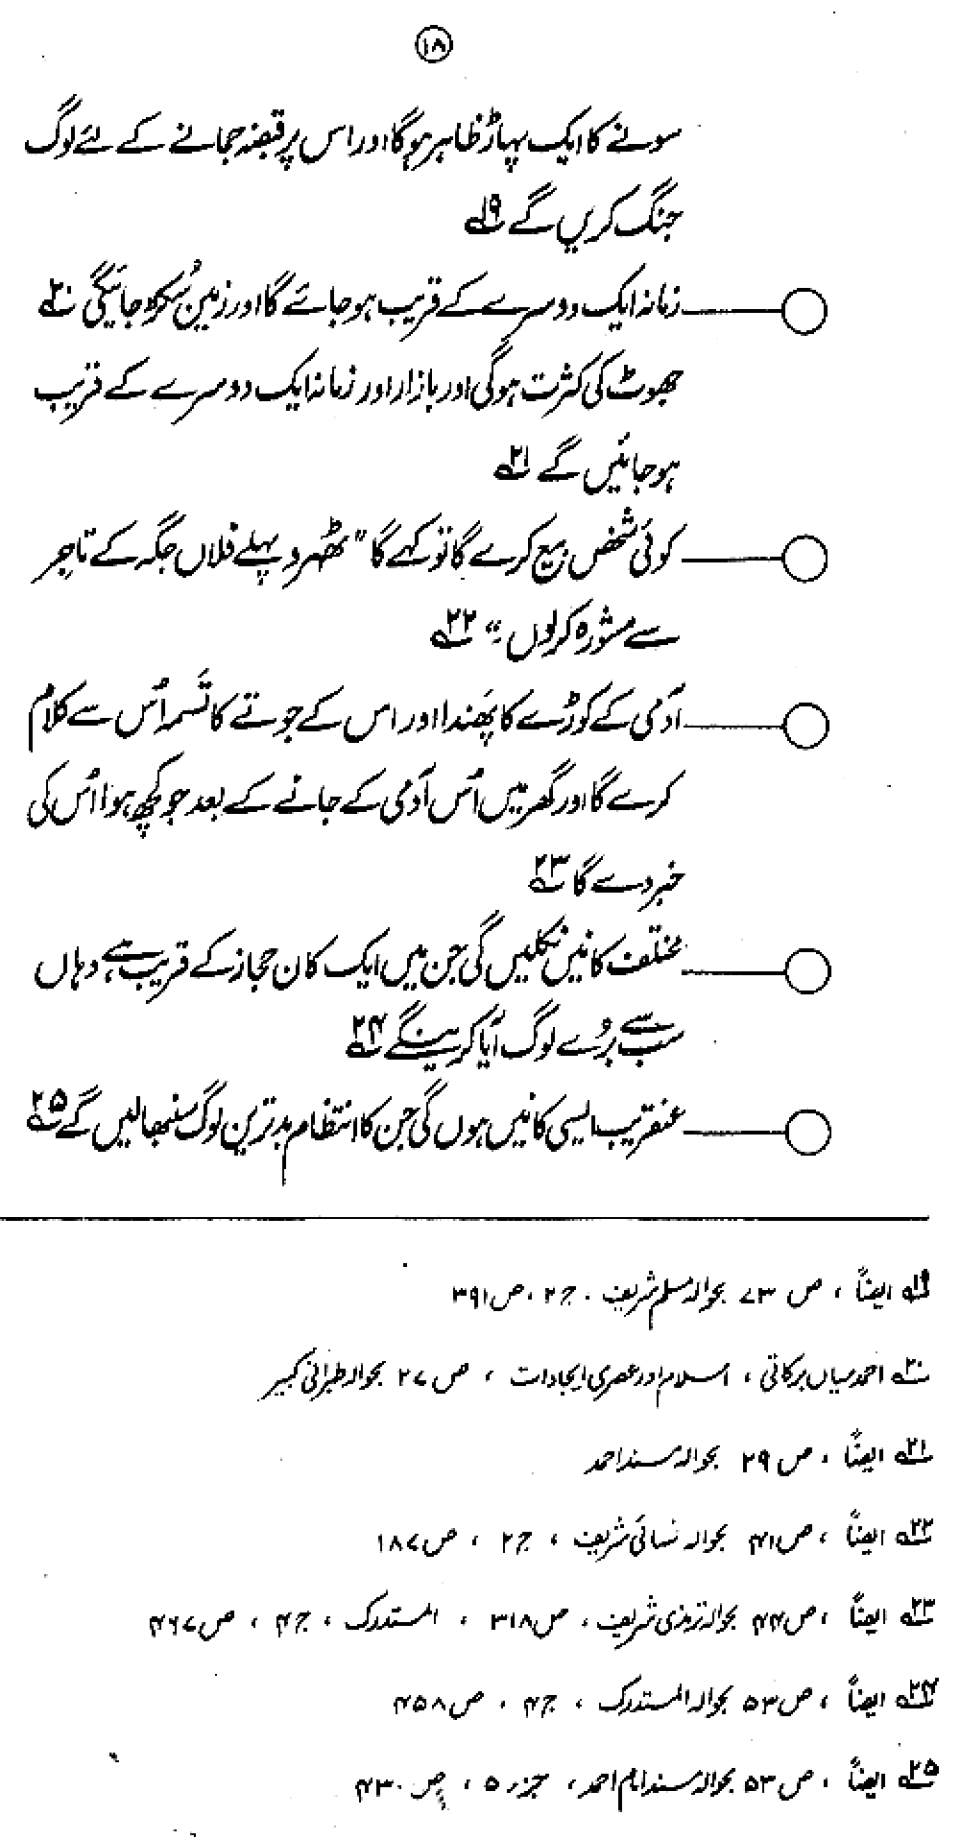 ۱۸
سونے کا ایک پہاڑ ظاہر ہوگا اور اس پر قبضہ جمانے کے لئے لوگ
جنگ کریں گے ۱۹؎
زمانہ ایک دوسرے کے قریب ہو جائے گا اور زمین سُکڑ جائیگی ۲۰؎
جھوٹ کی کثرت ہوگی اور بازار اور زمانہ ایک دوسرے کے قریب
ہو جائیں گے ۲۱؎
کوئی شخص بیع کرے گا تو کہے گا "ٹھہرو پہلے فلاں جگہ کے تاجر
سے مشورہ کرلوں"؛ ۲۲؎
آدمی کے کوڑے کا پھندا اور اس کے جوتے کا تَسمہ اُس سے کلام
کرے گا اور گھر میں اُس آدمی کے جانے کے بعد جو کچھ ہوا اُس کی
خبر دے گا ۲۳؎
مختلف کانیں نکلیں گی جن میں ایک کان حجاز کے قریب ہے وہاں
سب سے بُرے لوگ آیا کرینگے ۲۴؎
عنقریب ایسی کانیں ہوں گی جن کا انتظام بدترین لوگ سنبھالیں گے ۲۵؎
۱۹؎ ایضاً ، ص ۷۳ بحوالہ مسلم شریف ، ج ۲ ، ص ۳۹۱
۲۰؎ احمد میاں برکاتی ، اسلام اور عصری ایجادات ، ص ۲۷ بحوالہ طبرانی کبیر
۲۱؎ ایضاً ، ص ۲۹ بحوالہ مسند احمد
۲۲؎ ایضاً ، ص ۴۱ بحوالہ نسائی شریف ، ج ۲ ، ص ۱۸۷
۲۳؎ ایضاً ، ص ۴۴ بحوالہ ترمذی شریف ، ص ۳۱۸ ، المستدرک ، ج ۴ ، ص ۴۶۷
۲۴؎ ایضاً ، ص ۵۳ بحوالہ المستدرک ، ج ۴ ، ص ۴۵۸
۲۵؎ ایضاً ، ص ۵۳ بحوالہ مسند امام احمد ، جزء ۵ ، ص ۴۳۰